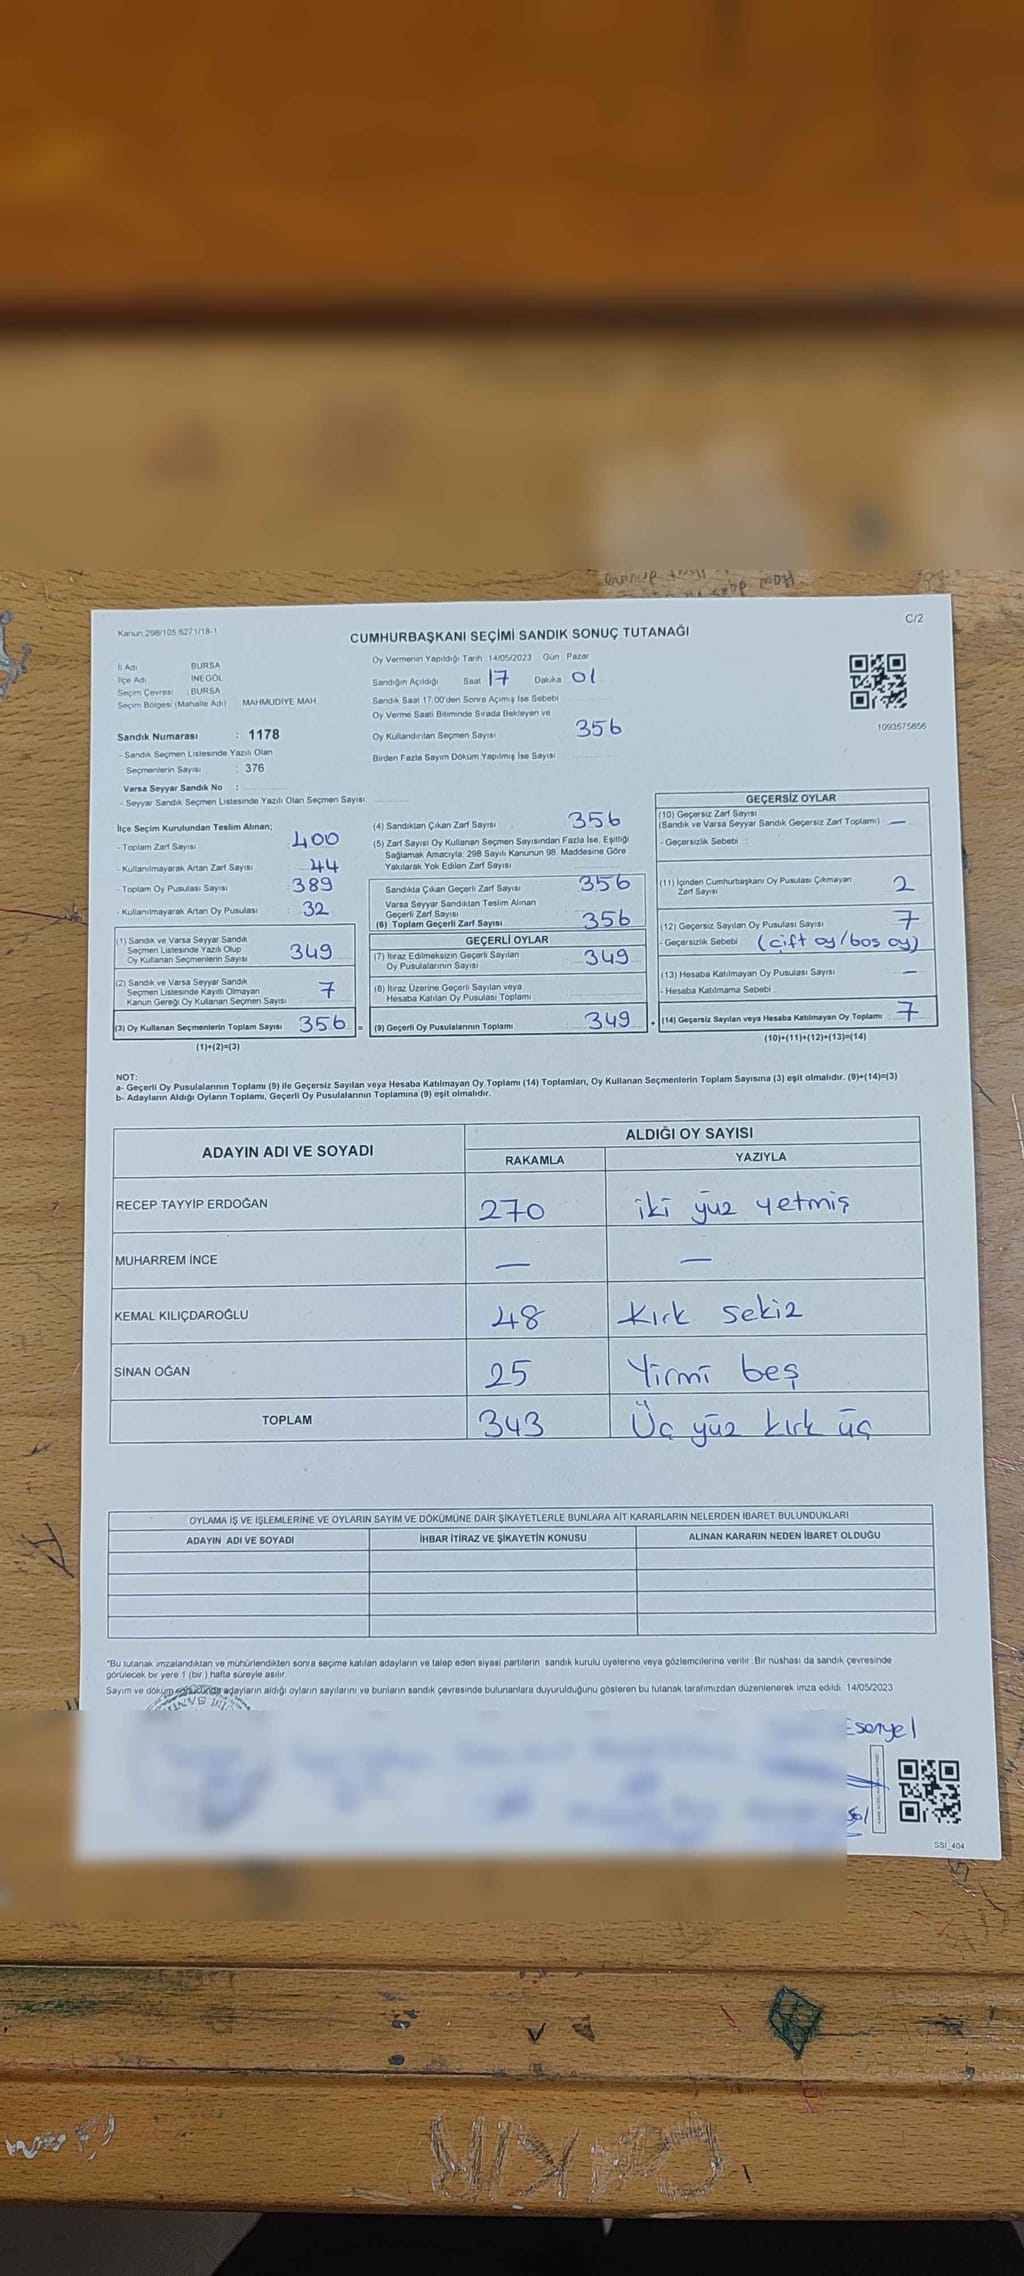 Kanun:298/105,6271/18-1
C/2
CUMHURBAŞKANI SEÇİMİ SANDIK SONUÇ TUTANAĞI
İl Adı BURSA
İlçe Adı İNEGÖL
Seçim Çevresi : BURSA
Seçim Bölgesi (Mahalle Adı) MAHMUDİYE MAH
Oy Vermenin Yapıldığı Tarih :14/05/2023 Gün : Pazar
Sandığın Açıldığı Saat 17 Dakika 01
Sandık Saat 17.00'den Sonra Açılmış İse Sebebi
Oy Verme Saati Bitiminde Sırada Bekleyen ve
Oy Kullandırılan Seçmen Sayısı 356
Birden Fazla Sayım Döküm Yapılmış İse Sayısı
1093575856
Sandık Numarası : 1178
- Sandık Seçmen Listesinde Yazılı Olan
Seçmenlerin Sayısı : 376
Varsa Seyyar Sandık No :
- Seyyar Sandık Seçmen Listesinde Yazılı Olan Seçmen Sayısı
İlçe Seçim Kurulundan Teslim Alınan;
- Toplam Zarf Sayısı : 400
- Kullanılmayarak Artan Zarf Sayısı : 44
- Toplam Oy Pusulası Sayısı : 389
- Kullanılmayarak Artan Oy Pusulası : 32
(1) Sandık ve Varsa Seyyar Sandık
Seçmen Listesinde Yazılı Olup
Oy Kullanan Seçmenlerin Sayısı 349
(2) Sandık ve Varsa Seyyar Sandık
Seçmen Listesinde Kayıtlı Olmayan
Kanun Gereği Oy Kullanan Seçmen Sayısı 7
(3) Oy Kullanan Seçmenlerin Toplam Sayısı 356 =
(1)+(2)=(3)
(4) Sandıktan Çıkan Zarf Sayısı 356
(5) Zarf Sayısı Oy Kullanan Seçmen Sayısından Fazla İse, Eşitliği
Sağlamak Amacıyla, 298 Sayılı Kanunun 98. Maddesine Göre
Yakılarak Yok Edilen Zarf Sayısı
Sandıkta Çıkan Geçerli Zarf Sayısı 356
Varsa Seyyar Sandıktan Teslim Alınan
Geçerli Zarf Sayısı
(6) Toplam Geçerli Zarf Sayısı 356
GEÇERLİ OYLAR
(7) İtiraz Edilmeksizin Geçerli Sayılan
Oy Pusulalarının Sayısı 349
(8) İtiraz Üzerine Geçerli Sayılan veya
Hesaba Katılan Oy Pusulası Toplamı
(9) Geçerli Oy Pusulalarının Toplamı 349 +
GEÇERSİZ OYLAR
(10) Geçersiz Zarf Sayısı
(Sandık ve Varsa Seyyar Sandık Geçersiz Zarf Toplamı) : —
- Geçersizlik Sebebi :
(11) İçinden Cumhurbaşkanı Oy Pusulası Çıkmayan
Zarf Sayısı 2
(12) Geçersiz Sayılan Oy Pusulası Sayısı 7
- Geçersizlik Sebebi (çift oy/boş oy)
(13) Hesaba Katılmayan Oy Pusulası Sayısı —
- Hesaba Katılmama Sebebi
(14) Geçersiz Sayılan veya Hesaba Katılmayan Oy Toplamı 7
(10)+(11)+(12)+(13)=(14)
NOT:
a- Geçerli Oy Pusulalarının Toplamı (9) ile Geçersiz Sayılan veya Hesaba Katılmayan Oy Toplamı (14) Toplamları, Oy Kullanan Seçmenlerin Toplam Sayısına (3) eşit olmalıdır. (9)+(14)=(3)
b- Adayların Aldığı Oyların Toplamı, Geçerli Oy Pusulalarının Toplamına (9) eşit olmalıdır.
ADAYIN ADI VE SOYADI
ALDIĞI OY SAYISI
RAKAMLA YAZIYLA
RECEP TAYYİP ERDOĞAN 270 iki yüz yetmiş
MUHARREM İNCE — —
KEMAL KILIÇDAROĞLU 48 Kırk sekiz
SİNAN OĞAN 25 Yirmi beş
TOPLAM 343 Üç yüz kırk üç
OYLAMA İŞ VE İŞLEMLERİNE VE OYLARIN SAYIM VE DÖKÜMÜNE DAİR ŞİKAYETLERLE BUNLARA AİT KARARLARIN NELERDEN İBARET BULUNDUKLARI
ADAYIN ADI VE SOYADI İHBAR İTİRAZ VE ŞİKAYETİN KONUSU ALINAN KARARIN NEDEN İBARET OLDUĞU
*Bu tutanak imzalandıktan ve mühürlendikten sonra seçime katılan adayların ve talep eden siyasi partilerin sandık kurulu üyelerine veya gözlemcilerine verilir. Bir nüshası da sandık çevresinde
görülecek bir yere 1 (bir ) hafta süreyle asılır.
Sayım ve döküm sonucunda adayların aldığı oyların sayılarını ve bunların sandık çevresinde bulunanlara duyurulduğunu gösteren bu tutanak tarafımızdan düzenlenerek imza edildi. 14/05/2023
Esenyel
SSI_404